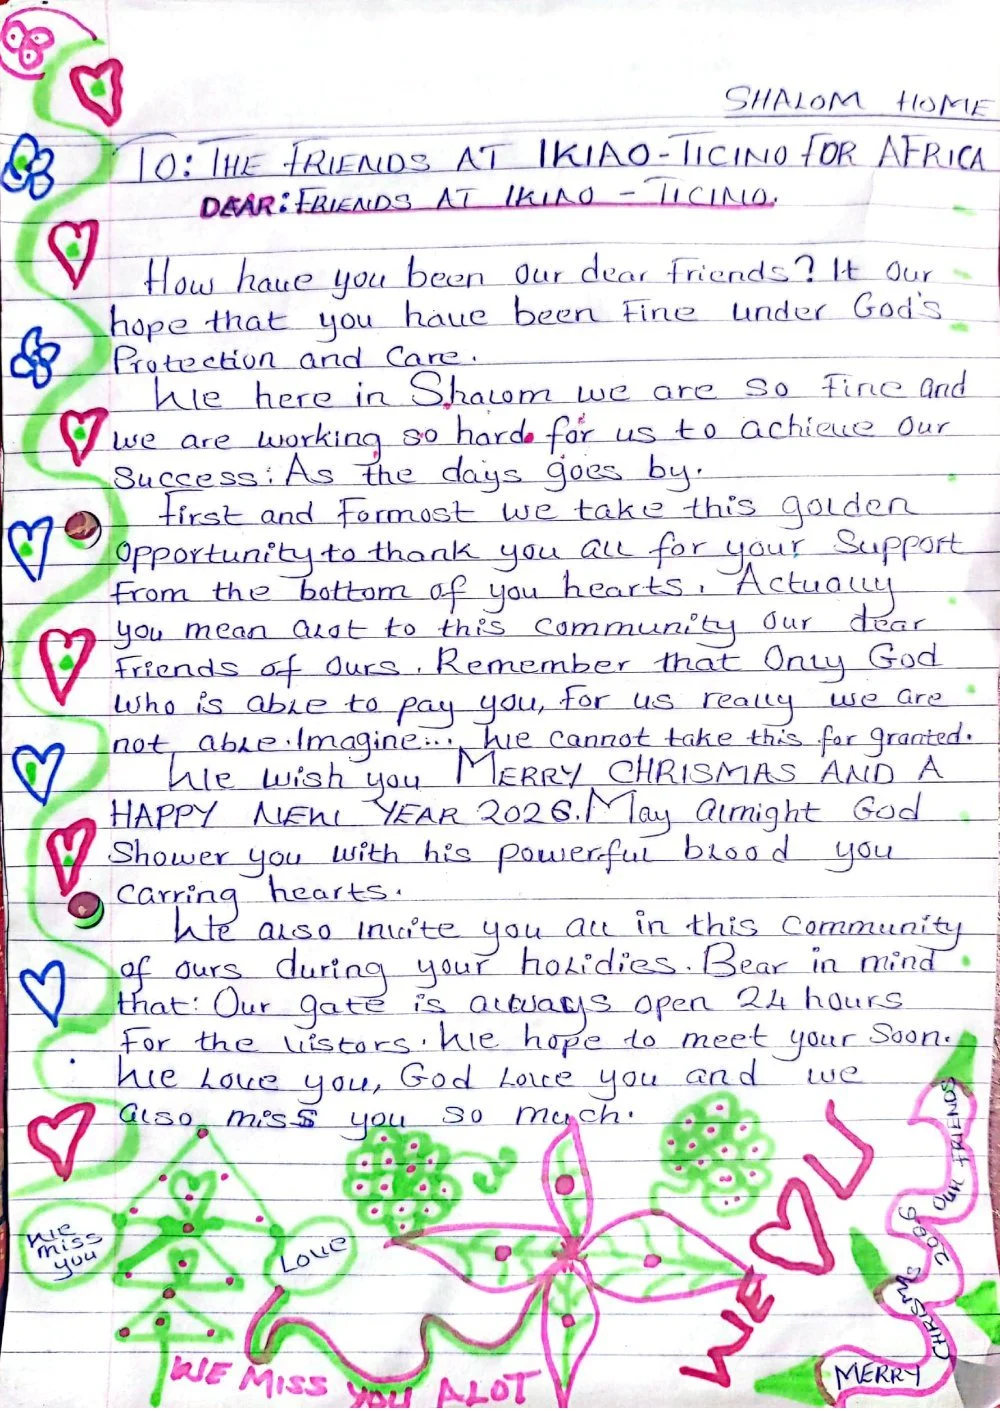 SHALOM HOME
TO: THE FRIENDS AT IKIAO-TICINO FOR AFRICA
DEAR: FRIENDS AT IKIAO - TICINO.
How have you been our dear friends? It our
hope that you have been Fine under God's
Protection and Care.
We here in Shalom we are so Fine and
we are working so hard for us to achieve our
Success: As the days goes by.
First and Formost we take this golden
opportunity to thank you all for your Support
From the bottom of you hearts. Actually
you mean alot to this community our dear
Friends of ours. Remember that Only God
who is able to pay you, for us really we are
not, able. Imagine... We cannot take this for granted.
We wish you MERRY CHRISMAS AND A
HAPPY NEW YEAR 2026. May almight God
Shower you with his powerful blood you
carring hearts.
We also invite you all in this community
of ours during your holidies. Bear in mind
that: Our gate is always open 24 hours
For the vistors. We hope to meet your Soon.
We Love you, God Love you and we
also miss you so much.
We
miss
you
LOVE
WE MISS YOU ALOT
WE U
MERRY CHRISMS 2006 OUR FRIENDS